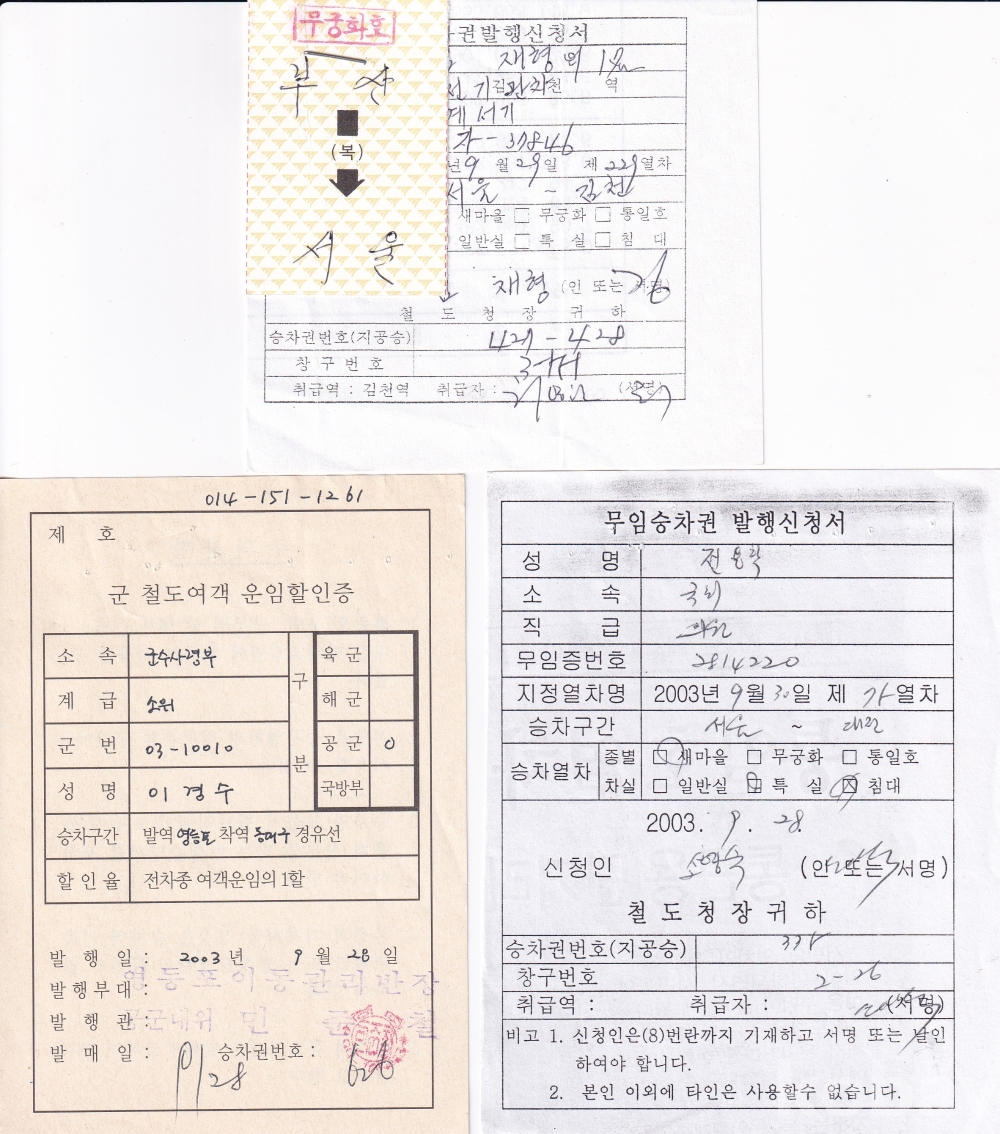 무궁화호
부산
(복)
서울
권발행신청서
재형 외 1
역
서기
자-37846
년 9월 29일 제 229열차
서울 ~ 김천
새마을 □ 무궁화 □ 통일호
일반실 □ 특 실 □ 침 대
재형 (인 또는 서명)
철 도 청 장 귀 하
승차권번호(지공승)
창 구 번 호
취급역 : 김천역 취급자 : (서명)
014-151-1261
제 호
군 철도여객 운임할인증
소 속 군수사령부
계 급 소위
군 번 03-10010
성 명 이경수
구분
육 군
해 군
공 군 0
국방부
승차구간 발역 영등포 착역 동대구 경유선
할 인 율 전차종 여객운임의 1할
발 행 일 : 2003 년 9 월 28 일
발행부대 : 영등포이동관리반장
발 행 관 : 공군대위 민 준 철
발 매 일 : 9/28 승차권번호 : 626
무임승차권 발행신청서
성 명 전용학
소 속 국회
직 급 의원
무임증번호 2814220
지정열차명 2003년 9월 30일 제 가 열차
승차구간 서울 ~ 대전
승차열차
종별 □ 새마을 □ 무궁화 □ 통일호
차실 □ 일반실 □ 특 실 □ 침대
2003. 9. 28.
신청인 (인 또는 서명)
철 도 청 장 귀 하
승차권번호(지공승)
창구번호 2-26
취급역 : 취급자 : (서명)
비고 1. 신청인은(8)번란까지 기재하고 서명 또는 날인
하여야 합니다.
2. 본인 이외에 타인은 사용할수 없습니다.